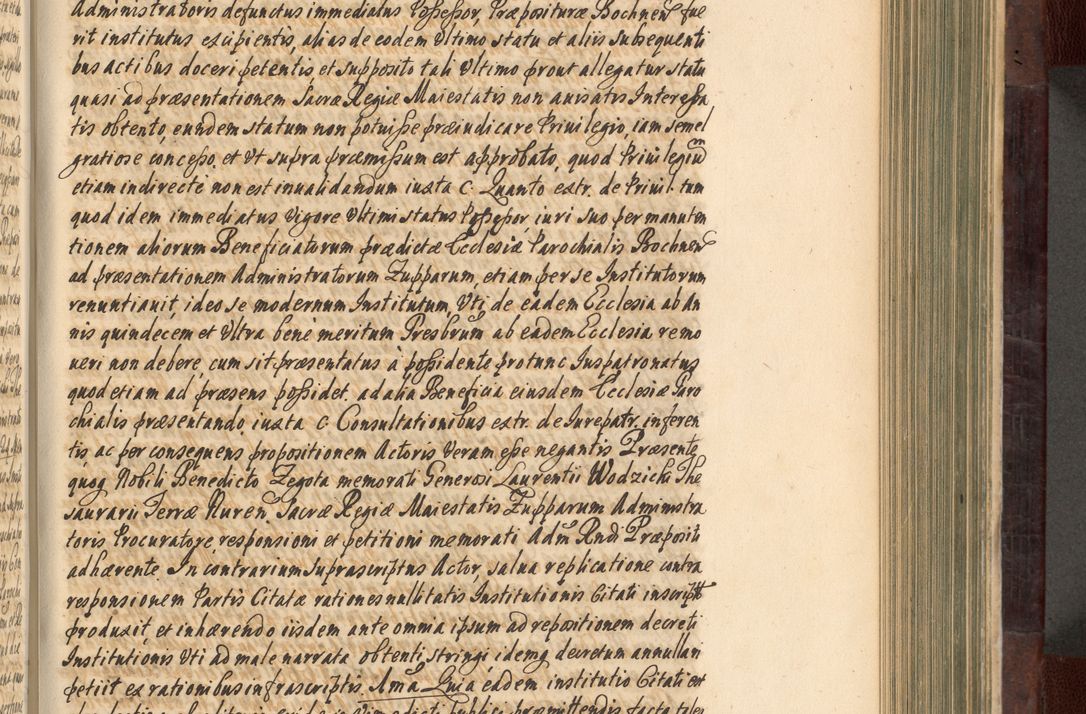 Administratoris defunctus immediatus Possessor, Præposituræ Bochnen fue
rit institutus excipientis, alias de eodem Ultimo statu et aliis subsequenti
bus actibus doceri petentis, et supposito tali Ultimo prout allegatur statu
quasi ad præsentationem Sacræ Regiæ Maiestatis non avisatis Interessa,
tis obtento, eundem statum non potuisse præiudicare Privilegio, iam semel
gratiose concesso, et Ut supra præmissum est approbato, quod Privilegium
etiam indirecte non est invalidandum iuxta C. Quanto extr. de Privil. tum
quod idem immediatus Vigore Ultimi status Possessor, iuri suo per manuten
tionem aliorum Beneficiatorum prædictæ Ecclesiæ Parochialis Bochnen
ad præsentationem Administratorum Zupparum, etiam per se Institutorum
renuntiavit, ideo se modernum Institutum, Uti de eadem Ecclesia ab An
nis quindecem et Ultra bené meritum Presbrum ab eadem Ecclesia remo
veri non debere, cum sit præsentatus à possidente pro tunc Juspatronatus
quod etiam ad præsens possidet. ad alia Beneficia eiusdem Ecclesiæ Paro
chialis præsentando, iuxta c. Consultationibus extr. de Jurepatr. inferen
tis, ac per consequens propositionem Actoris Veram esse negantis. Præsente
quoq Nobili Benedicto Zegota memorati Generosi Laurentii Wodzicki The
saurarii Terræ Nuren. Sacræ Regiæ Maiestatis Zupparum Administra
toris Procuratore, responsioni et petitioni memorati Adm Rndi Præpositi
adhærente. In contrarium suprascriptus Actor, salva replicatione contra
responsionem Partis Citatæ rationes nullitatis Institutionis Citati inscript
produxit, et inhærendo iisdem ante omnia ipsum ad repositionem decreti
Institutionis Uti ad male narrata obtenti, stringi, idemq decretum annullari
petiit ex rationibus infrascriptis. Ama Quia eadem institutio Citati est